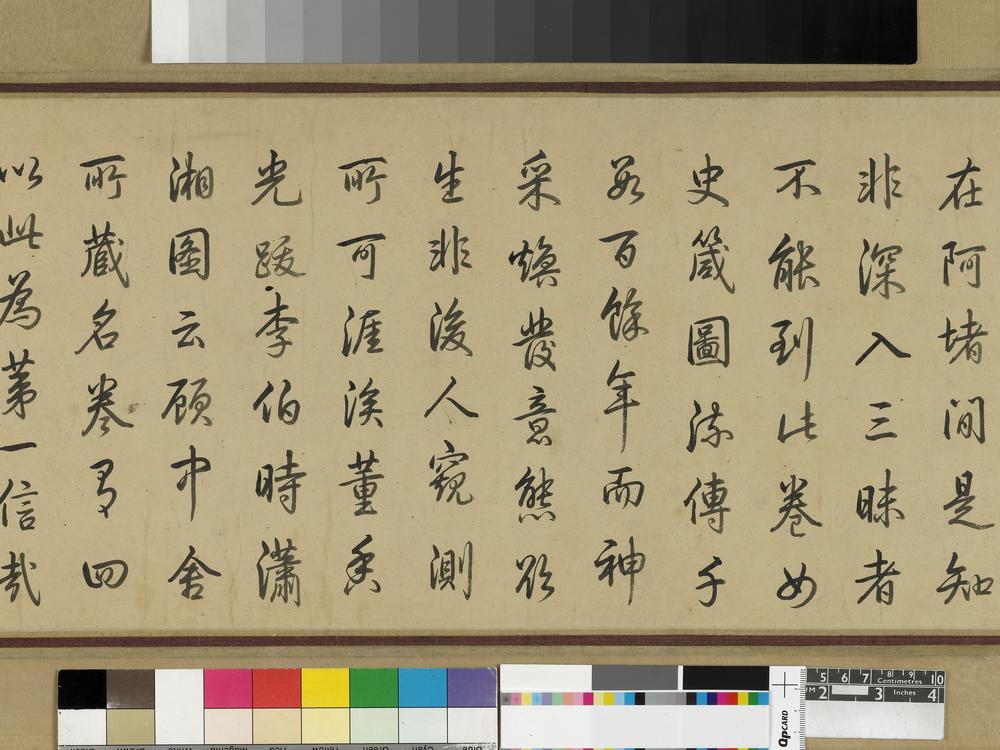 在阿堵間是知
非深入三昧者
不能到此卷女
史箴圖流傳千
數百餘年而神
采煥發意態欲
生非後人窺測
所可涯涘董香
光跋李伯時瀟
湘圖云顧中舍
所藏名卷有四
以此為第一信哉
QPCARD
5 6 7 8 9 10
Centimetres
2 3 Inches 4